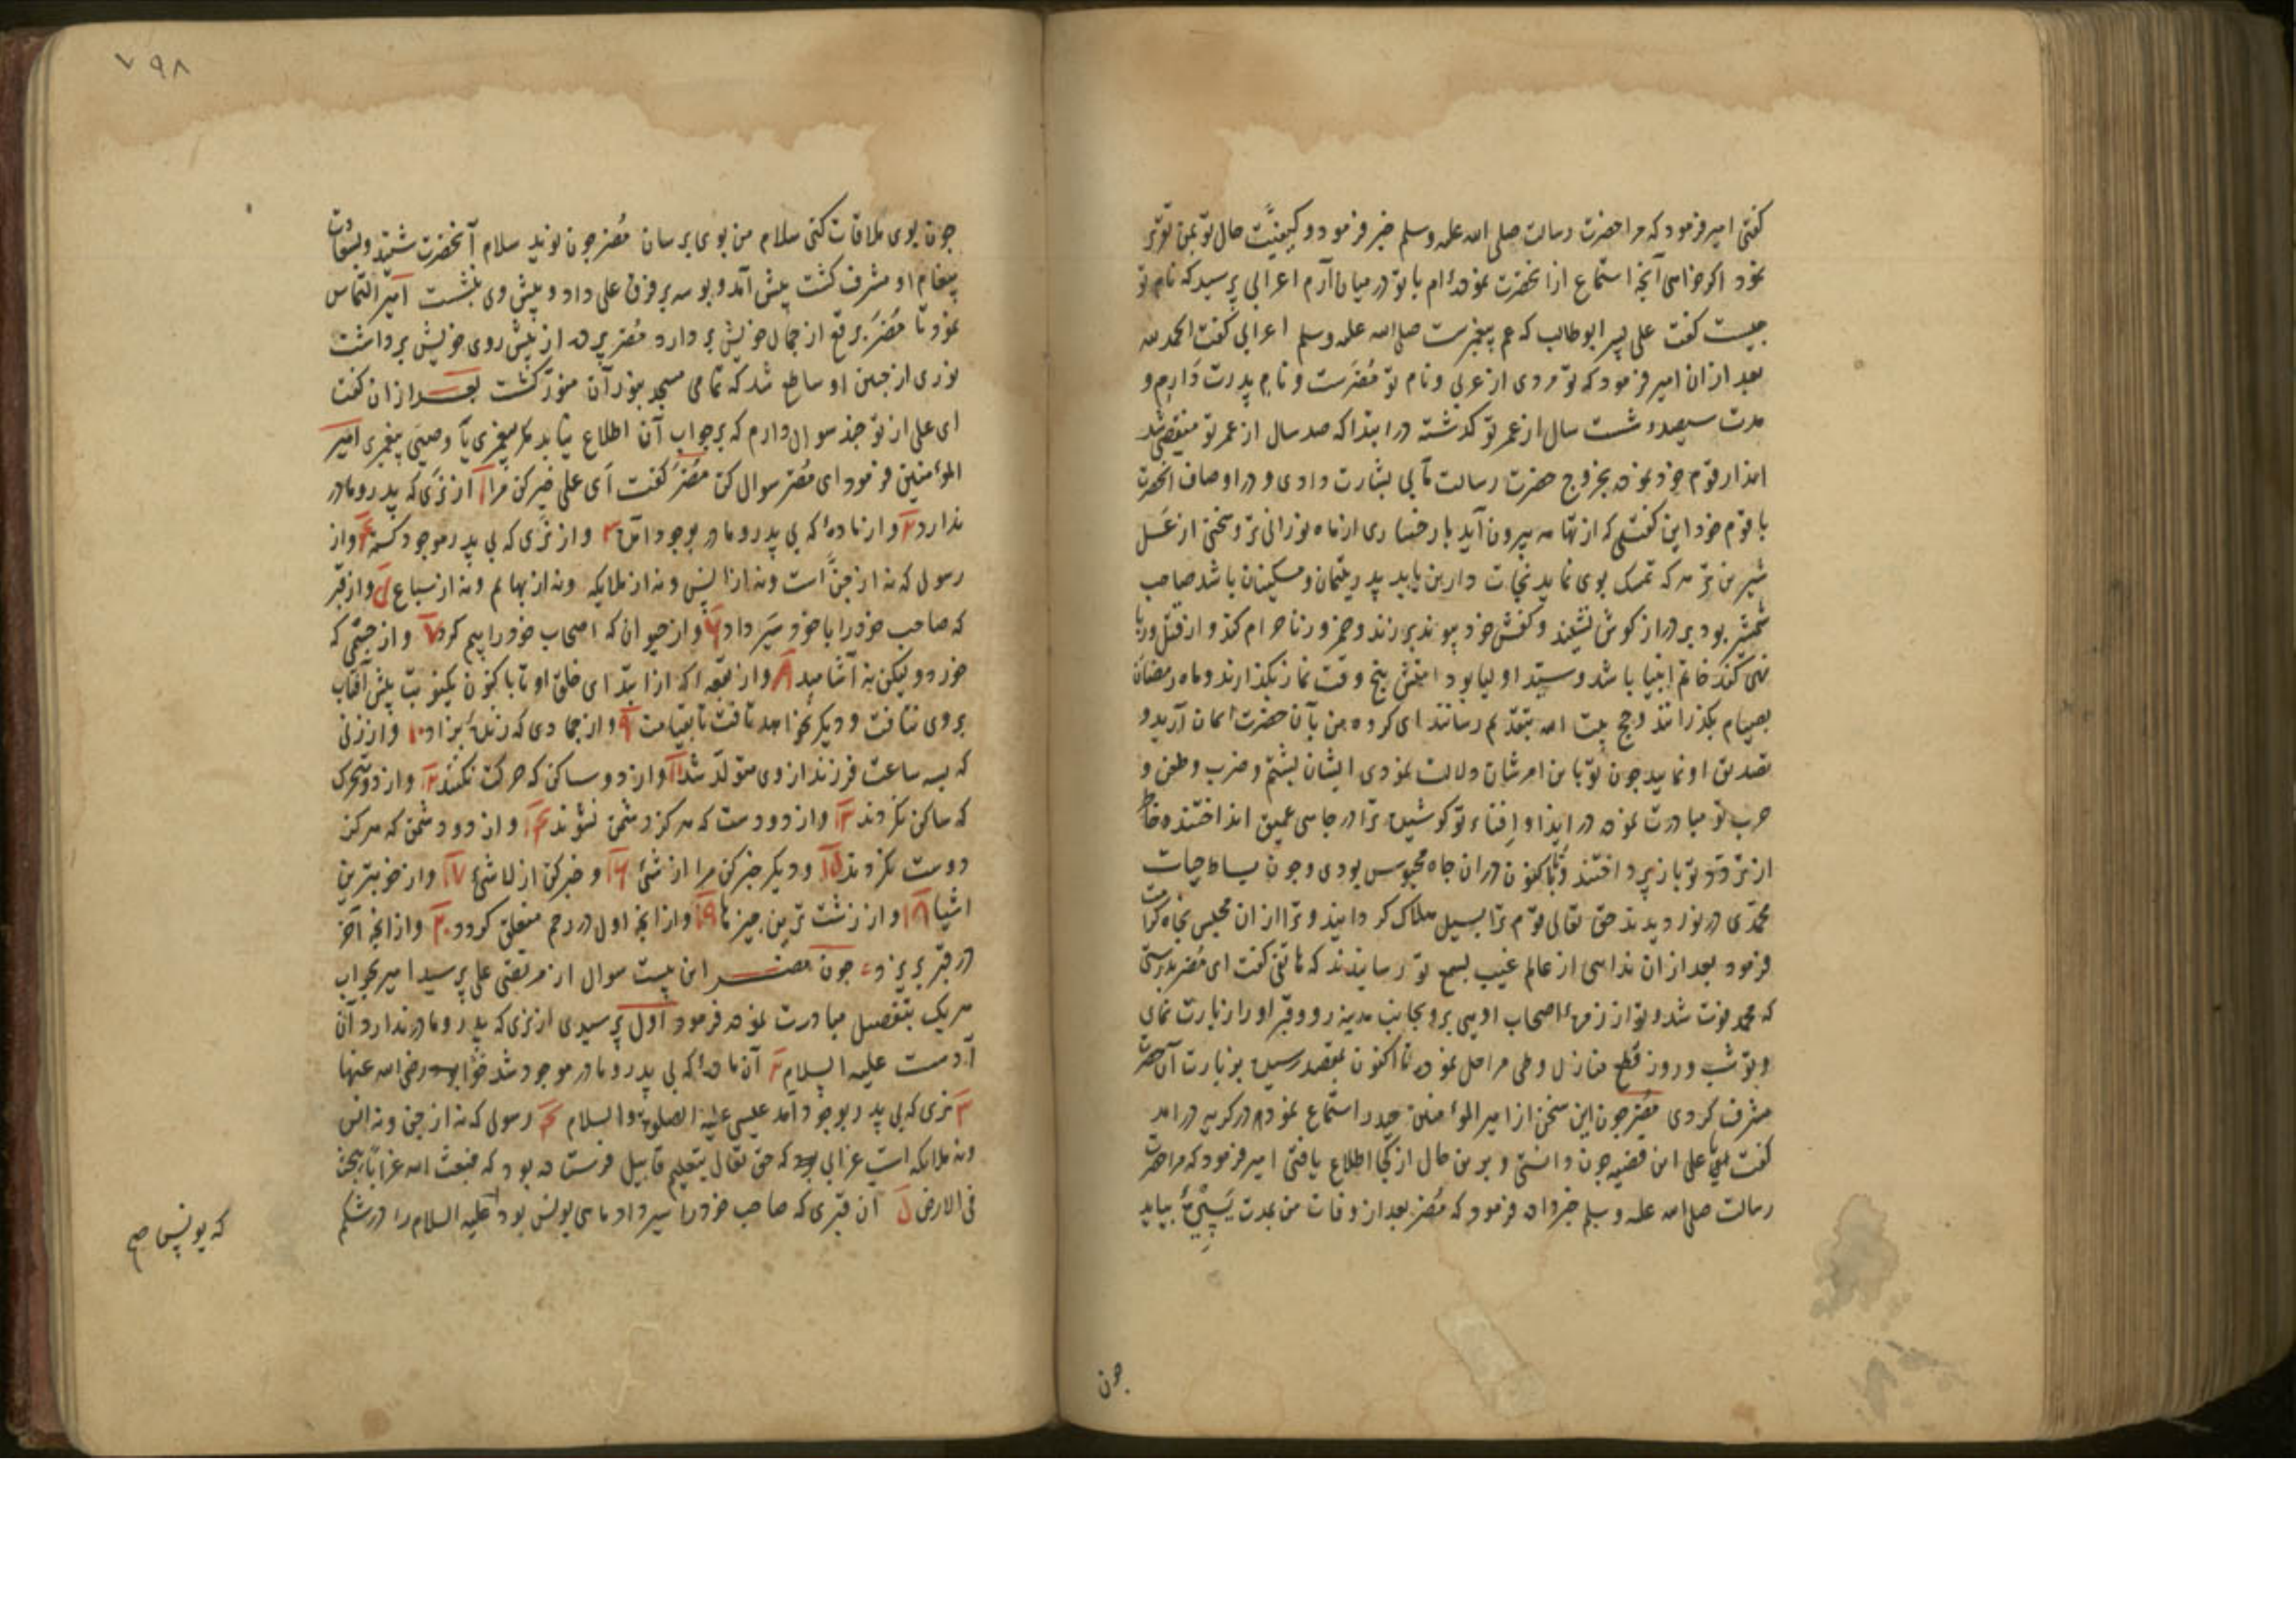 کفتی امیر فرمود که مرا حضرت رسالت صلی الله علیه وسلم خبر فرمود و کیفیّت حال تو بمن تقریر
نمود اکر خواهی آنچه استماع از آنحضرت نموده‌ام با تو در میان آرم اعرابی پرسید که نام تو
چیست کفت علی پسر ابوطالب که عم پیغمبرست صلی الله علیه وسلم اعرابی کفت الحمد لله
بعد ازان امیر فرمود که تو مردی از عربی و نام تو مُضَرست و نام پدرت دارم و
مدت سیصد و شست سال از عمر تو کذشته در ابتدا که صد سال از عمر تو منقضی شد
انذار قوم خود نموده بخروج حضرت رسالت مآبی بشارت دادی و در اوصاف آنحضرت
با قوم خود این کفتی که از تهامه بیرون آید با رخساری از ماه نورانی تر و سخنی از عَسَل
شیرین تر هر که تمسک بوی نماید نجات دارین یابد پدر یتیمان و مسکینان باشد صاحب
شمشیر بود بر دراز کوش نشیند و کفش خود پیوند برزند و خمر و زنا حرام کند و از قتل و ربا
نهی کند خاتم انبیا باشد و سید اولیا بود امتش پنج وقت نماز بکذارند و ماه رمضان
بصیام بکذرانند و حج بیت الله بتقدیم رسانند ای کروه من بآن حضرت ایمان آرید و
تصدیق او نمایید چون تو باین امر شان دلالت نمودی ایشان بشتم و ضرب و طعن و
حرب تو مبادرت نموده در ایذا و اِفناء تو کوشیده ترا در چاهی عمیق انداختند و خاطر
از تردّد تو باز پرداختند و تا کنون در ان چاه محبوس بودی و چون بساط حیات
محمّدی در نوردیدند حق تعالی قوم ترا بسیل هلاک کردانید و ترا از ان محبس نجاة کرامت
فرمود بعد از ان ندایی از عالم غیب بسمع تو رسانیدند که هاتفی کفت ای مُضَر بدرستی
که محمد فوت شد و تو از زمرهٔ اصحاب اویی برو بجانب مدینه رو و قبر او را زیارت نمای
و تو شب و روز قطع منازل و طی مراحل نموده تا اکنون بمقصد رسیده بزیارت آن حضرت
مشرف کردی مُضَر چون این سخن از امیر المؤمنین حیدر استماع نمود در کریه درآمد
کفت یا علی این قضیه چون دانستی و برین حال از کجا اطلاع یافتی امیر فرمود که مرا حضرت
رسالت صلی الله علیه وسلم خبر داده فرمود که مُضَر بعد از وفات من بمدت بیاید
چون
۷۹۸
چون بوی ملاقات کنی سلام من بوی برسان مُضَر چون نوید سلام آنحضرت شنید و بسعادت
پیغام او مشرف کشت پیش آمد و بوسه بر فرق علی داد و پیش وی بنشست امیر التماس
نمود تا مُضَر برقع از جمال خویش بردارد مُضَر پرده از پیش روی خویش برداشت
نوری از جبین او ساطع شد که تمامی مسجد بنور آن منوّر کشت بعد از ان کفت
ای علی از تو چند سوال دارم که بر جواب آن اطلاع نیابد مکر پیغمبری یا وصیّی پیغمبری امیر
المؤمنین فرمود ای مُضَر سوال کن مُضَر کفت ای علی خبر کن مرا ۱ از نری که پدر و مادر
ندارد ۲ و از مادهٔ که بی پدر و مادر بوجود آمد ۳ و از نَری که بی پدر موجود کشته ۴ و از
رسولی که نه از جنّ است و نه از انس و نه از ملایکه و نه از بهایم و نه از سباع ۵ و از قبر
که صاحب خود را با خود سَیر داد ۶ و از حیوان که اصحاب خود را بیم کرد ۷ و از جسمی که
خورد و لیکن نه آشامید ۸ و از بقعه که از ابتدای خلق او تا با کنون یکنوبت پیش آفتاب
بروی نتافت و دیکر نخواهد تافت تا بقیامت ۹ و از جمادی که زندهٔ بزاد ۱۰ و از زنی
که بسه ساعت فرزند از وی متولد شد ۱۱ و از دو ساکن که حرکت نکنند ۱۲ و از دو متحرک
که ساکن نکردند ۱۳ و از دو دوست که هرکز دشمن نشوند ۱۴ و از دو دشمن که هرکز
دوست نکردند ۱۵ و دیکر خبر کن مرا از شئ ۱۶ و خبر کن از لا شئ ۱۷ و از خوبترین
اشیا ۱۸ و از زشت ترین چیزها ۱۹ و از انچه اول در رحم منعقد کردد ۲۰ و از انچه آخر
در قبر بریزد چون مضر این بیست سوال از مرتضی علی پرسید امیر بجواب
هریک بتفصیل مبادرت نموده فرمود اول پرسیدی از نری که پدر و مادر ندارد آن
آدمست علیه السلام ۲ آن مادهٔ که بی پدر و مادر موجود شد حوّا بود رضی الله عنها
۳ نری که بی پدر بوجود آمد عیسی علیه الصلوة والسلام ۴ رسولی که نه از جن و نه انس
و نه ملایکه است غرابی بود که حق تعالی بتعلیم قابیل فرستاده بود که فبعث الله غراباً یبحث
فی الارض ۵ آن قبری که صاحب خود را سیر داد ماهی یونس بود علیه السلام را در شکم
که یونس صح